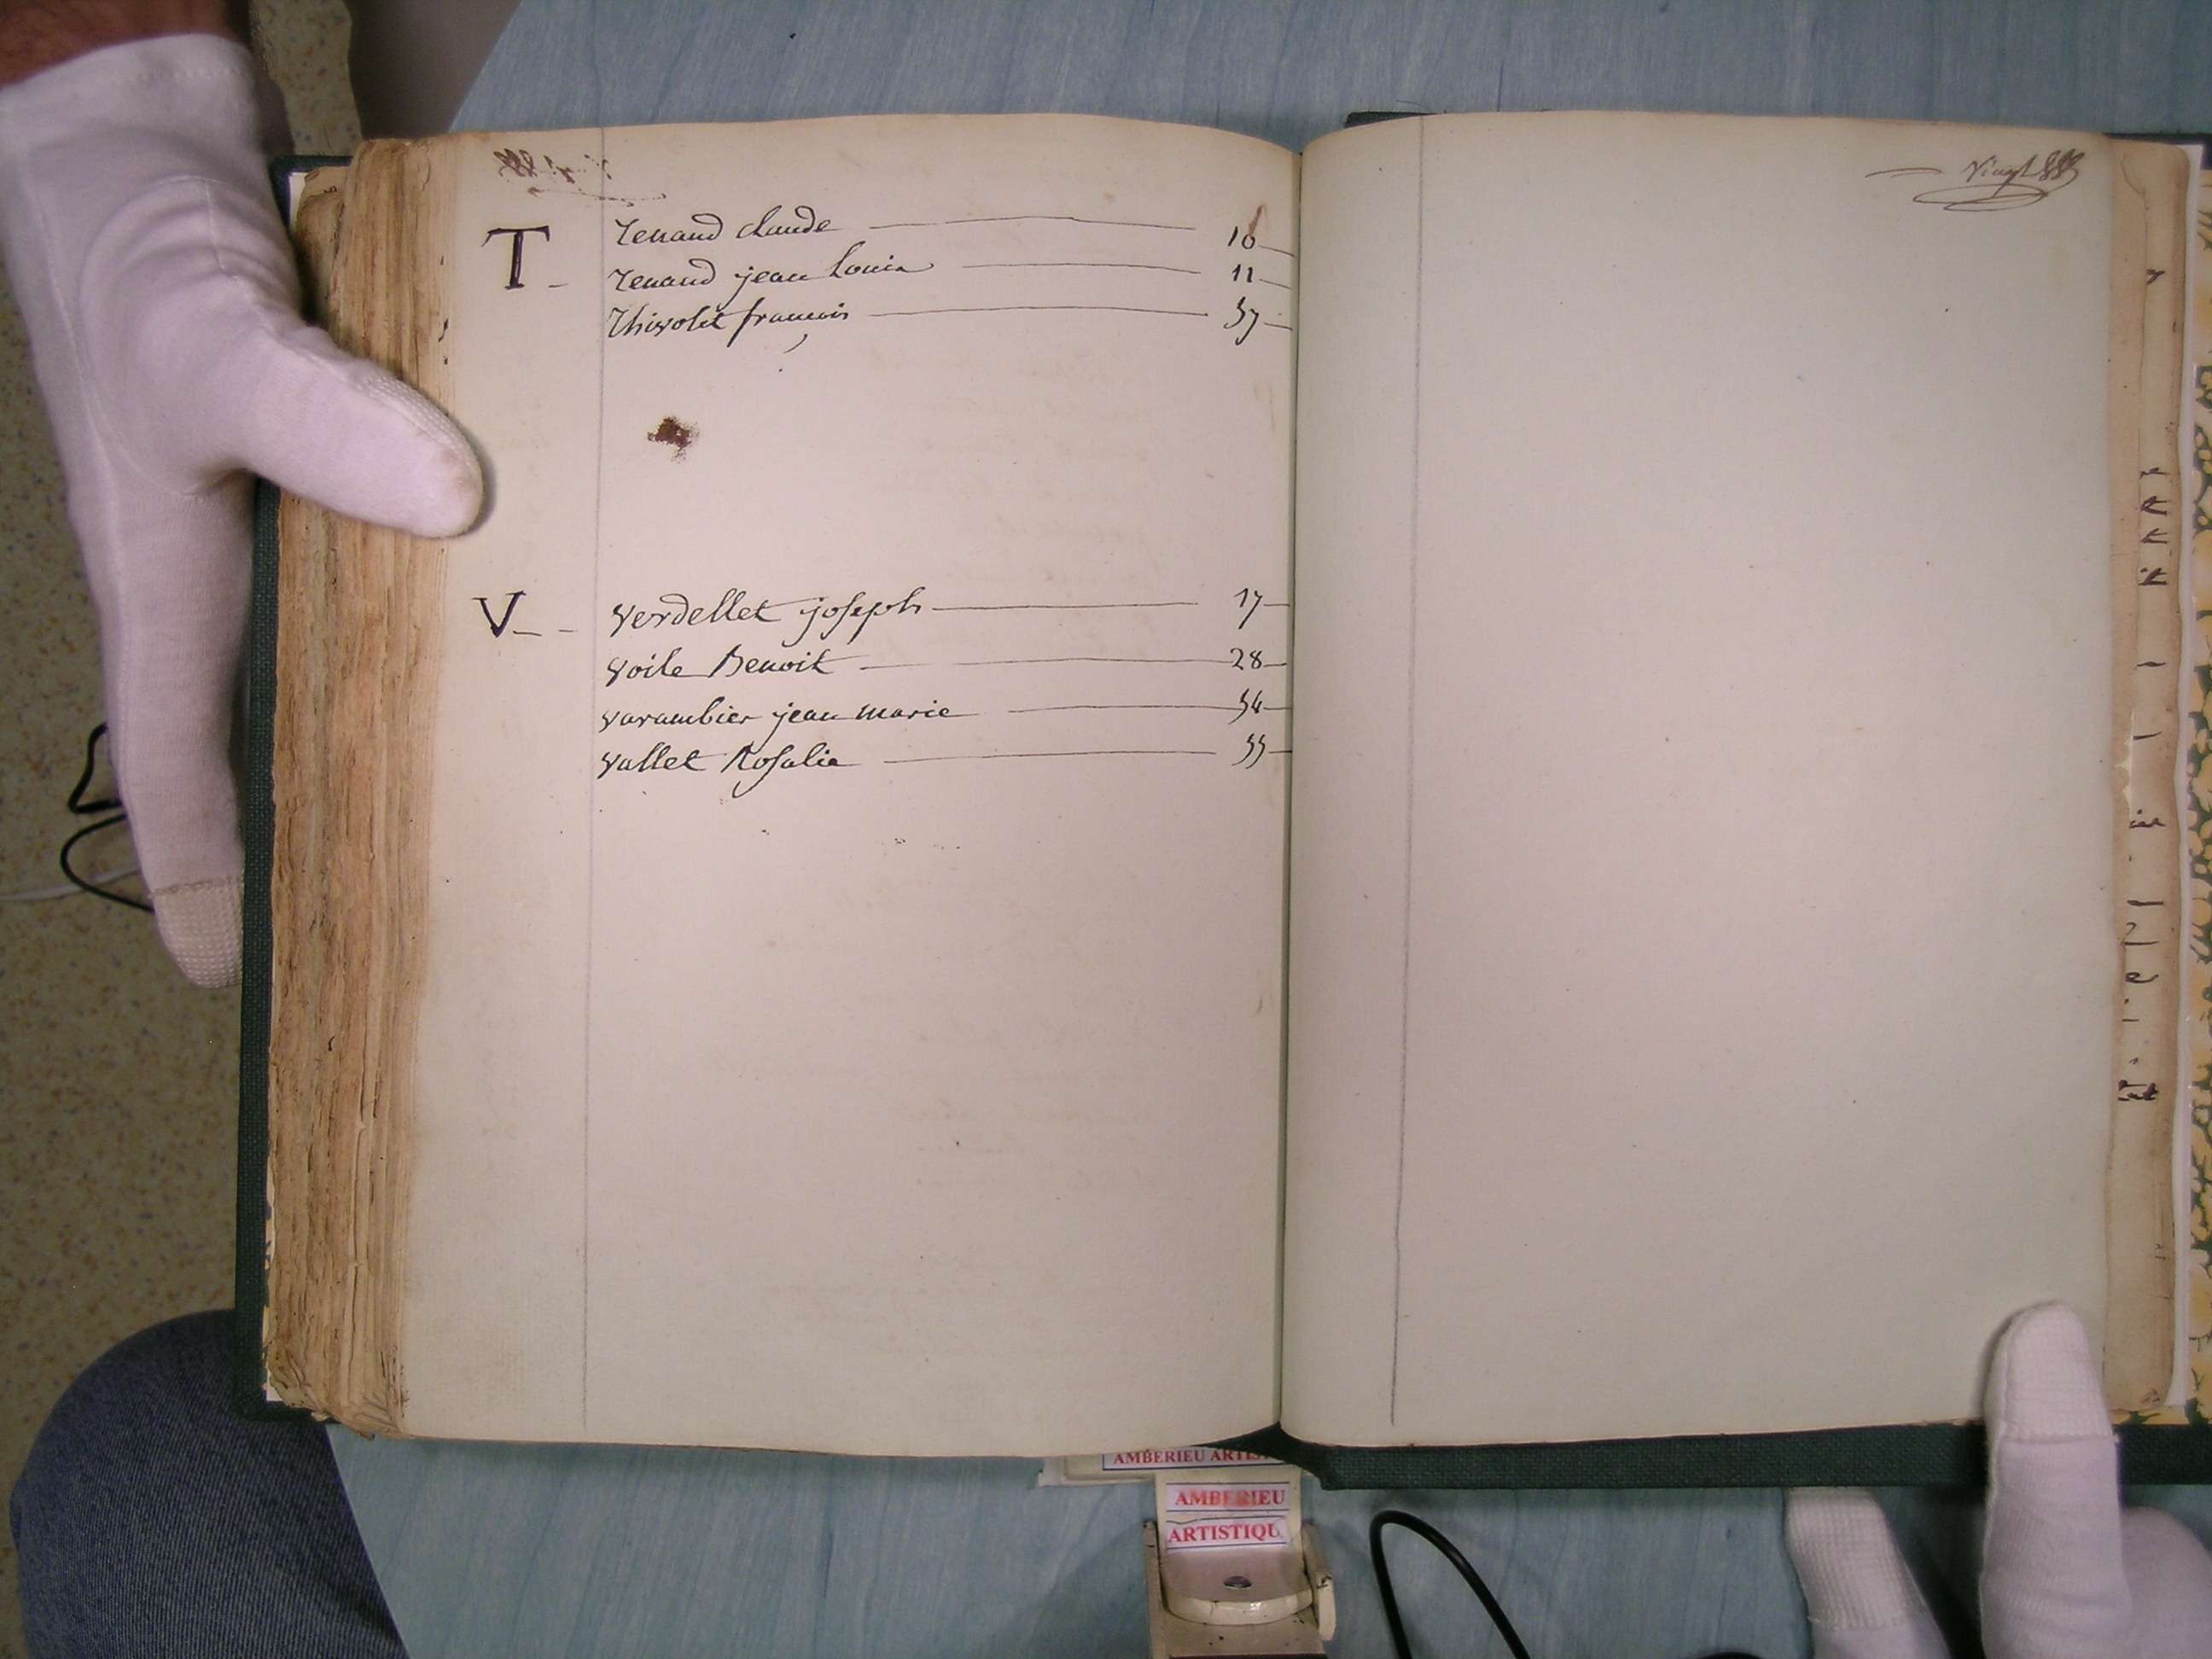 T - Tenand claude 10
Tenand jean Louis 11
Thivolet francois 57
V - - Verdellet joseph 17
Voile Benoit 28
varambier jean marie 54
Vallet Rosalie 55
Vingt
AMBERIEU ARTIS
AMBERIEU
ARTISTIQU